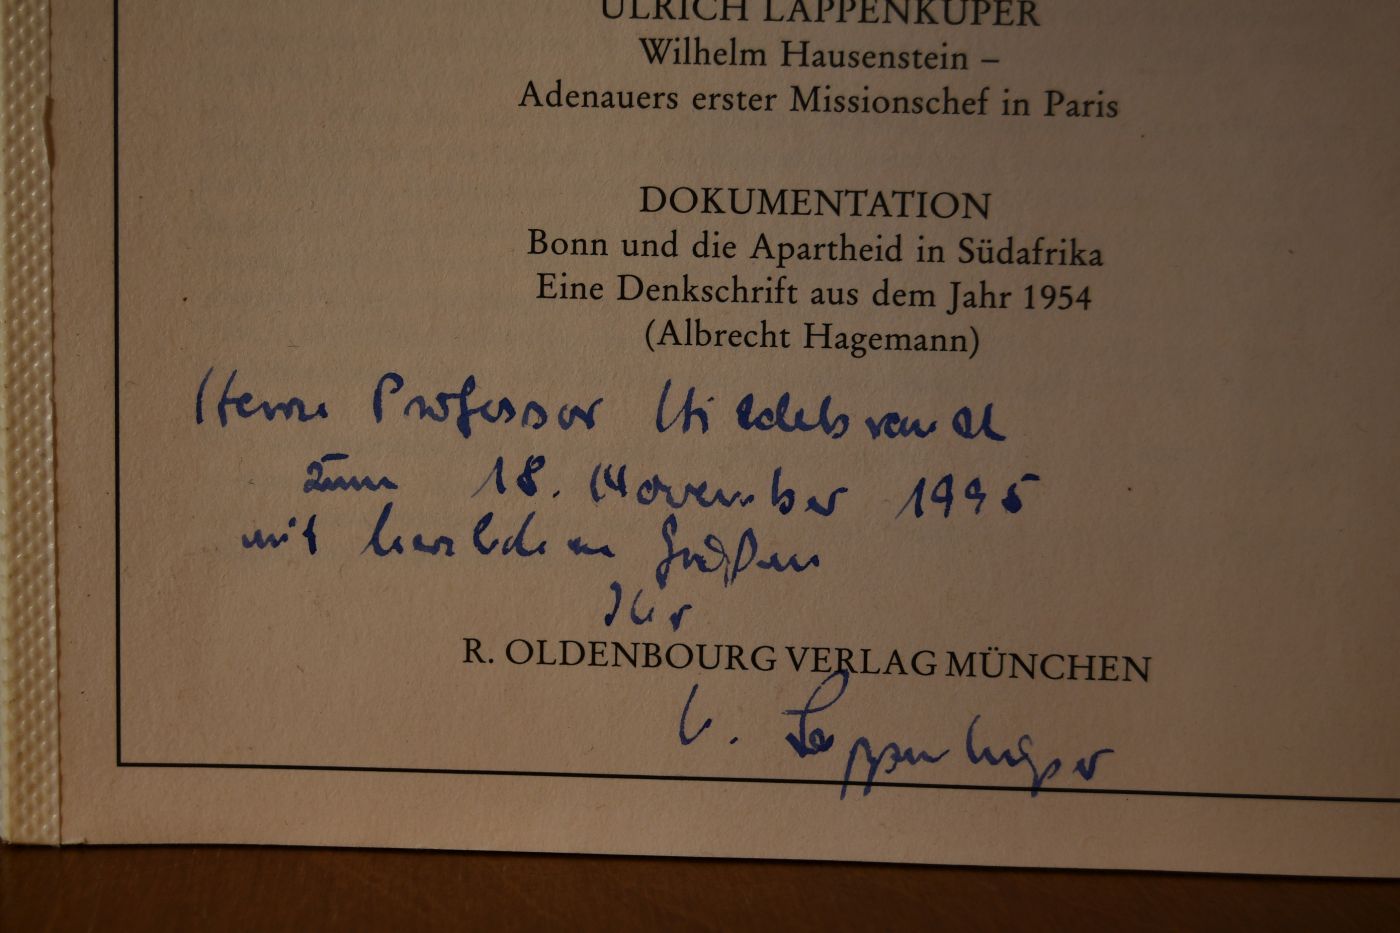 ULRICH LAPPENKÜPER
Wilhelm Hausenstein –
Adenauers erster Missionschef in Paris
DOKUMENTATION
Bonn und die Apartheid in Südafrika
Eine Denkschrift aus dem Jahr 1954
(Albrecht Hagemann)
Herrn Professor Hildebrand
zum 18. November 1995
mit herzlichen Grüßen
Ihr
R. OLDENBOURG VERLAG MÜNCHEN
U. Lappenküper